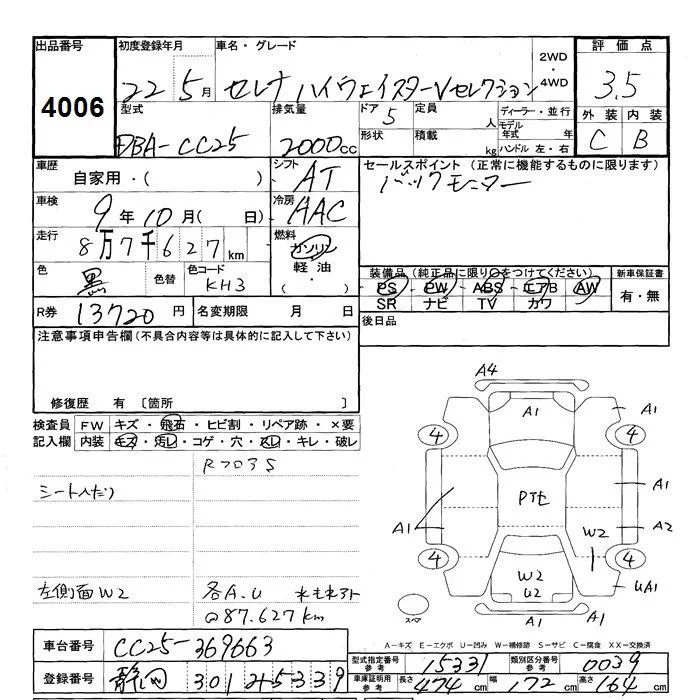 出品番号 初度登録年月 車名・グレード 2WD・4WD 評価点
4006 22 5月 セレナ ハイウェイスターVセレクション 3.5
型式 排気量 ドア 5 定員 人 ディーラー・並行 外装 内装
DBA-CC25 2000cc 形状 積載 kg モデル年式 年 ハンドル 左・右 C B
車歴 自家用・( ) シフト AT セールスポイント (正常に機能するものに限ります)
車検 9年10月( 日) 冷房 AAC バックモニター
走行 8万7千627km 燃料 ガソリン 軽油・( )
色 黒 色替 色コード KH3
装備品(純正品に限り○をつけてください) 新車保証書
PS PW ABS エアB AW 有・無
SR ナビ TV カワ
R券 13720円 名変期限 月 日 後日品
注意事項申告欄(不具合内容等は具体的に記入して下さい)
修復歴 有 〔箇所 〕
検査員記入欄 FW キズ・飛石・ヒビ割・リペア跡・×要
内装 キズ・汚レ・コゲ・穴・スレ・キレ・破レ
シート入だり
左側面W2 各A.U
@87.627km
A4
A1 A1
4 4
PTセ A1
A1 A2
W2
4 4
W2 UA1
U2
スペア A1 A1
A-キズ E-エクボ U-凹み W-補修跡 S-サビ C-腐食 XX-交換済
車台番号 CC25-369663 型式指定番号 参考 15331 類別区分番号 参考 0039
登録番号 静岡 301 5339 車庫証明用 参考 長さ 474cm 幅 172cm 高さ 164cm